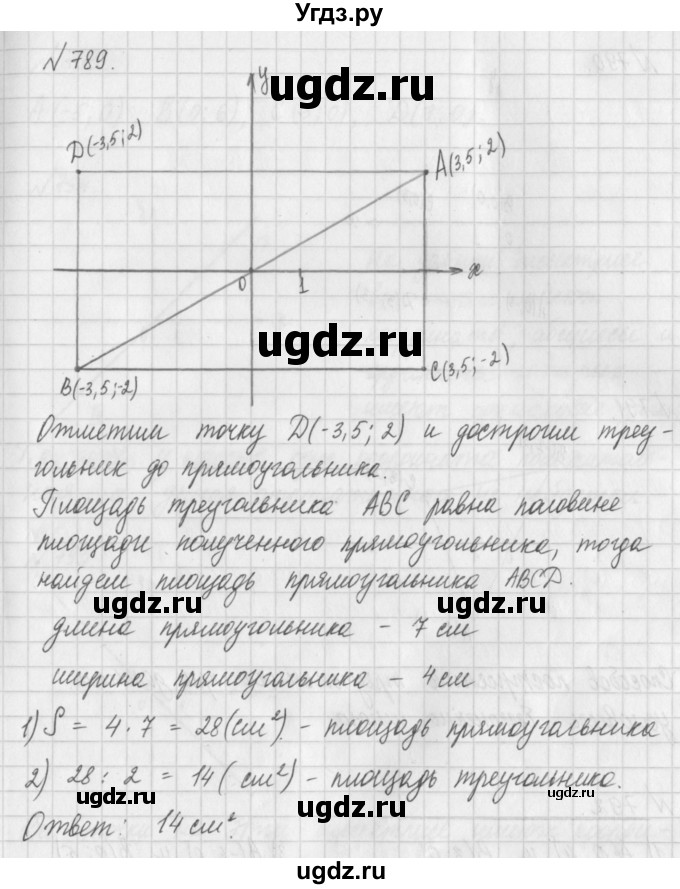 Угдз.ру
№ 789.
ugdz.ru
y
D(-3,5; 2)
A(3,5; 2)
0
1
x
ugdz.ru
B(-3,5; -2)
C(3,5; -2)
Отметим точку D(-3,5; 2) и достроим треу-
гольник до прямоугольника.
Площадь треугольника ABC равна половине
ugdz.ru
площади полученного прямоугольника, тогда
найдем площадь прямоугольника ABCD.
ugdz.ru ugdz.ru
длина прямоугольника - 7 см
ширина прямоугольника - 4 см
ugdz.ru
1) S = 4 · 7 = 28 (см²) - площадь прямоугольника
2) 28 : 2 = 14 (см²) - площадь треугольника.
ugdz.ru ugdz.ru
Ответ: 14 см².
ugdz.ru